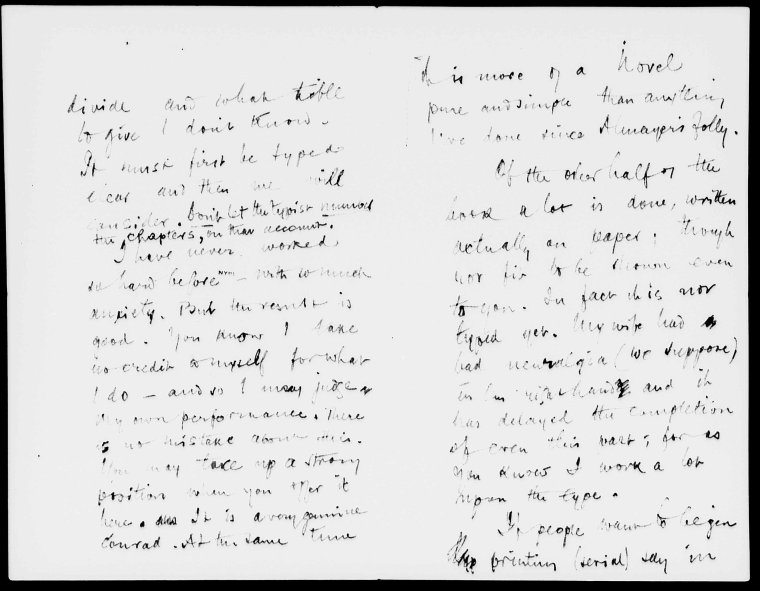 divide and what title
to give I don't know.
It must first be typed
clear and then we will
consider. Don't let the typist number
the chapters, on that account.
I have never worked
so hard before – with so much
anxiety. But the result is
good. You know I take
no credit to myself for what
I do – and so I may judge
my own performance. There
is no mistake about this.
You may take up a strong
position when you offer it
here. It is a very genuine
Conrad. At the same time
it is more of a Novel
pure and simple than anything
I've done since Almayer's Folly.
Of the other half of the
book a lot is done, written
actually on paper; though
not fit to be shown even
to you. In fact it is not
typed yet. My wife had
bad neuralgia (we suppose)
in her right hand and it
has delayed the completion
of even this part; for as
you know I work a lot
upon the type.
If people want to begin
printing (serial) say in